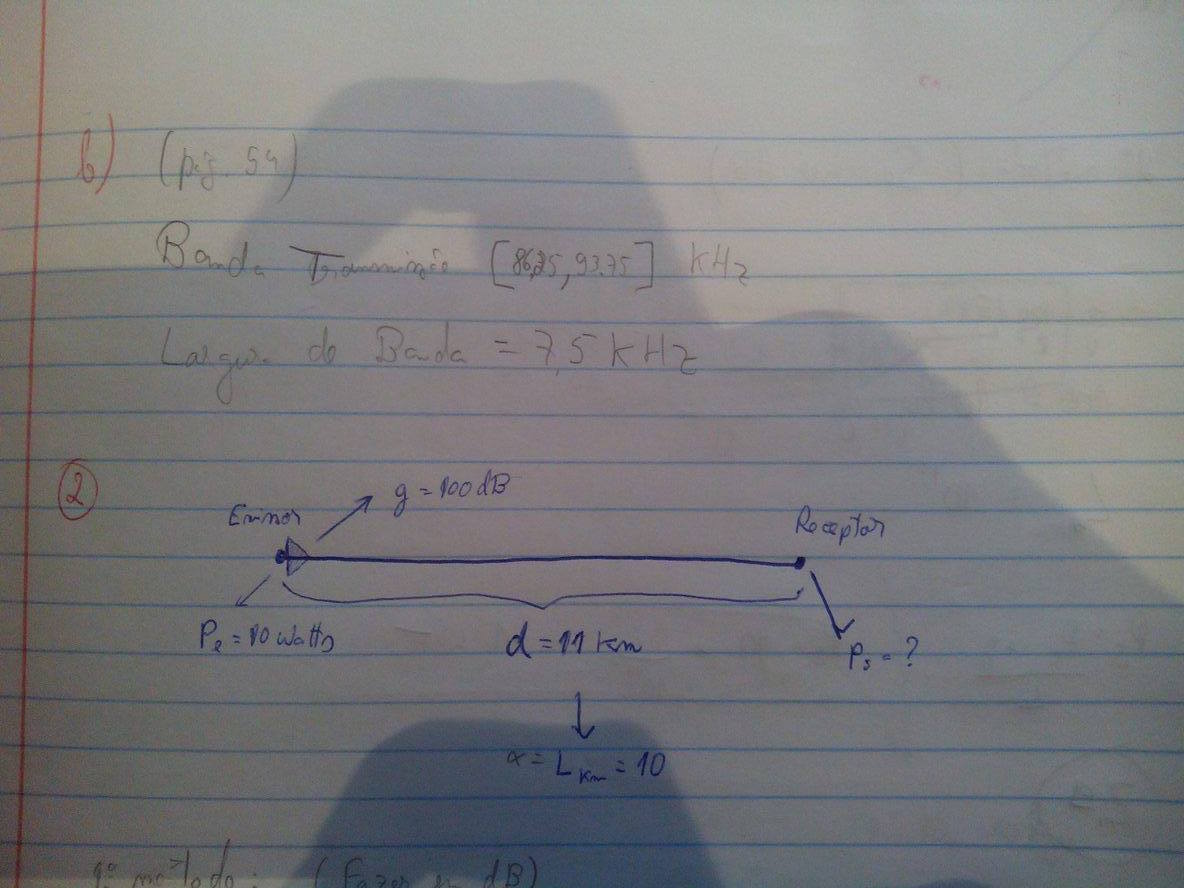 b) (pág. 54)
Banda Transmissão [86,25, 93.75] KHz
Largura de Banda = 7,5 KHz
2
g = 100 dB
Emissor
Receptor
Pe = 10 Watts
d = 11 Km
Ps = ?
α = L Km = 10
1º método: (Fazer em dB)